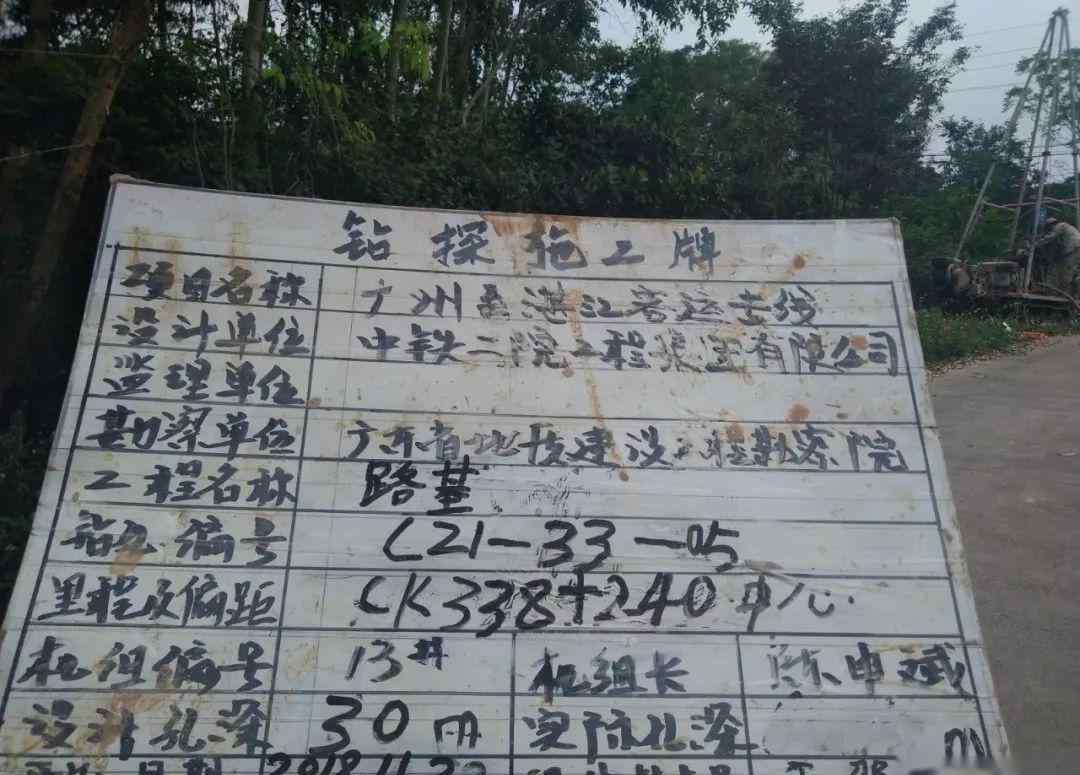 钻探施工牌
项目名称 广州至湛江客运专线
设计单位 中铁二院工程集团有限公司
监理单位
勘察单位 广东省地技建设工程勘察院
工程名称 路基
钻孔编号 CZ1-33-05
里程及偏距 CK338+240 中心
机组编号 13# 机组长 陈申斌
设计孔深 30m 实际孔深 m
日期 2018.11.22